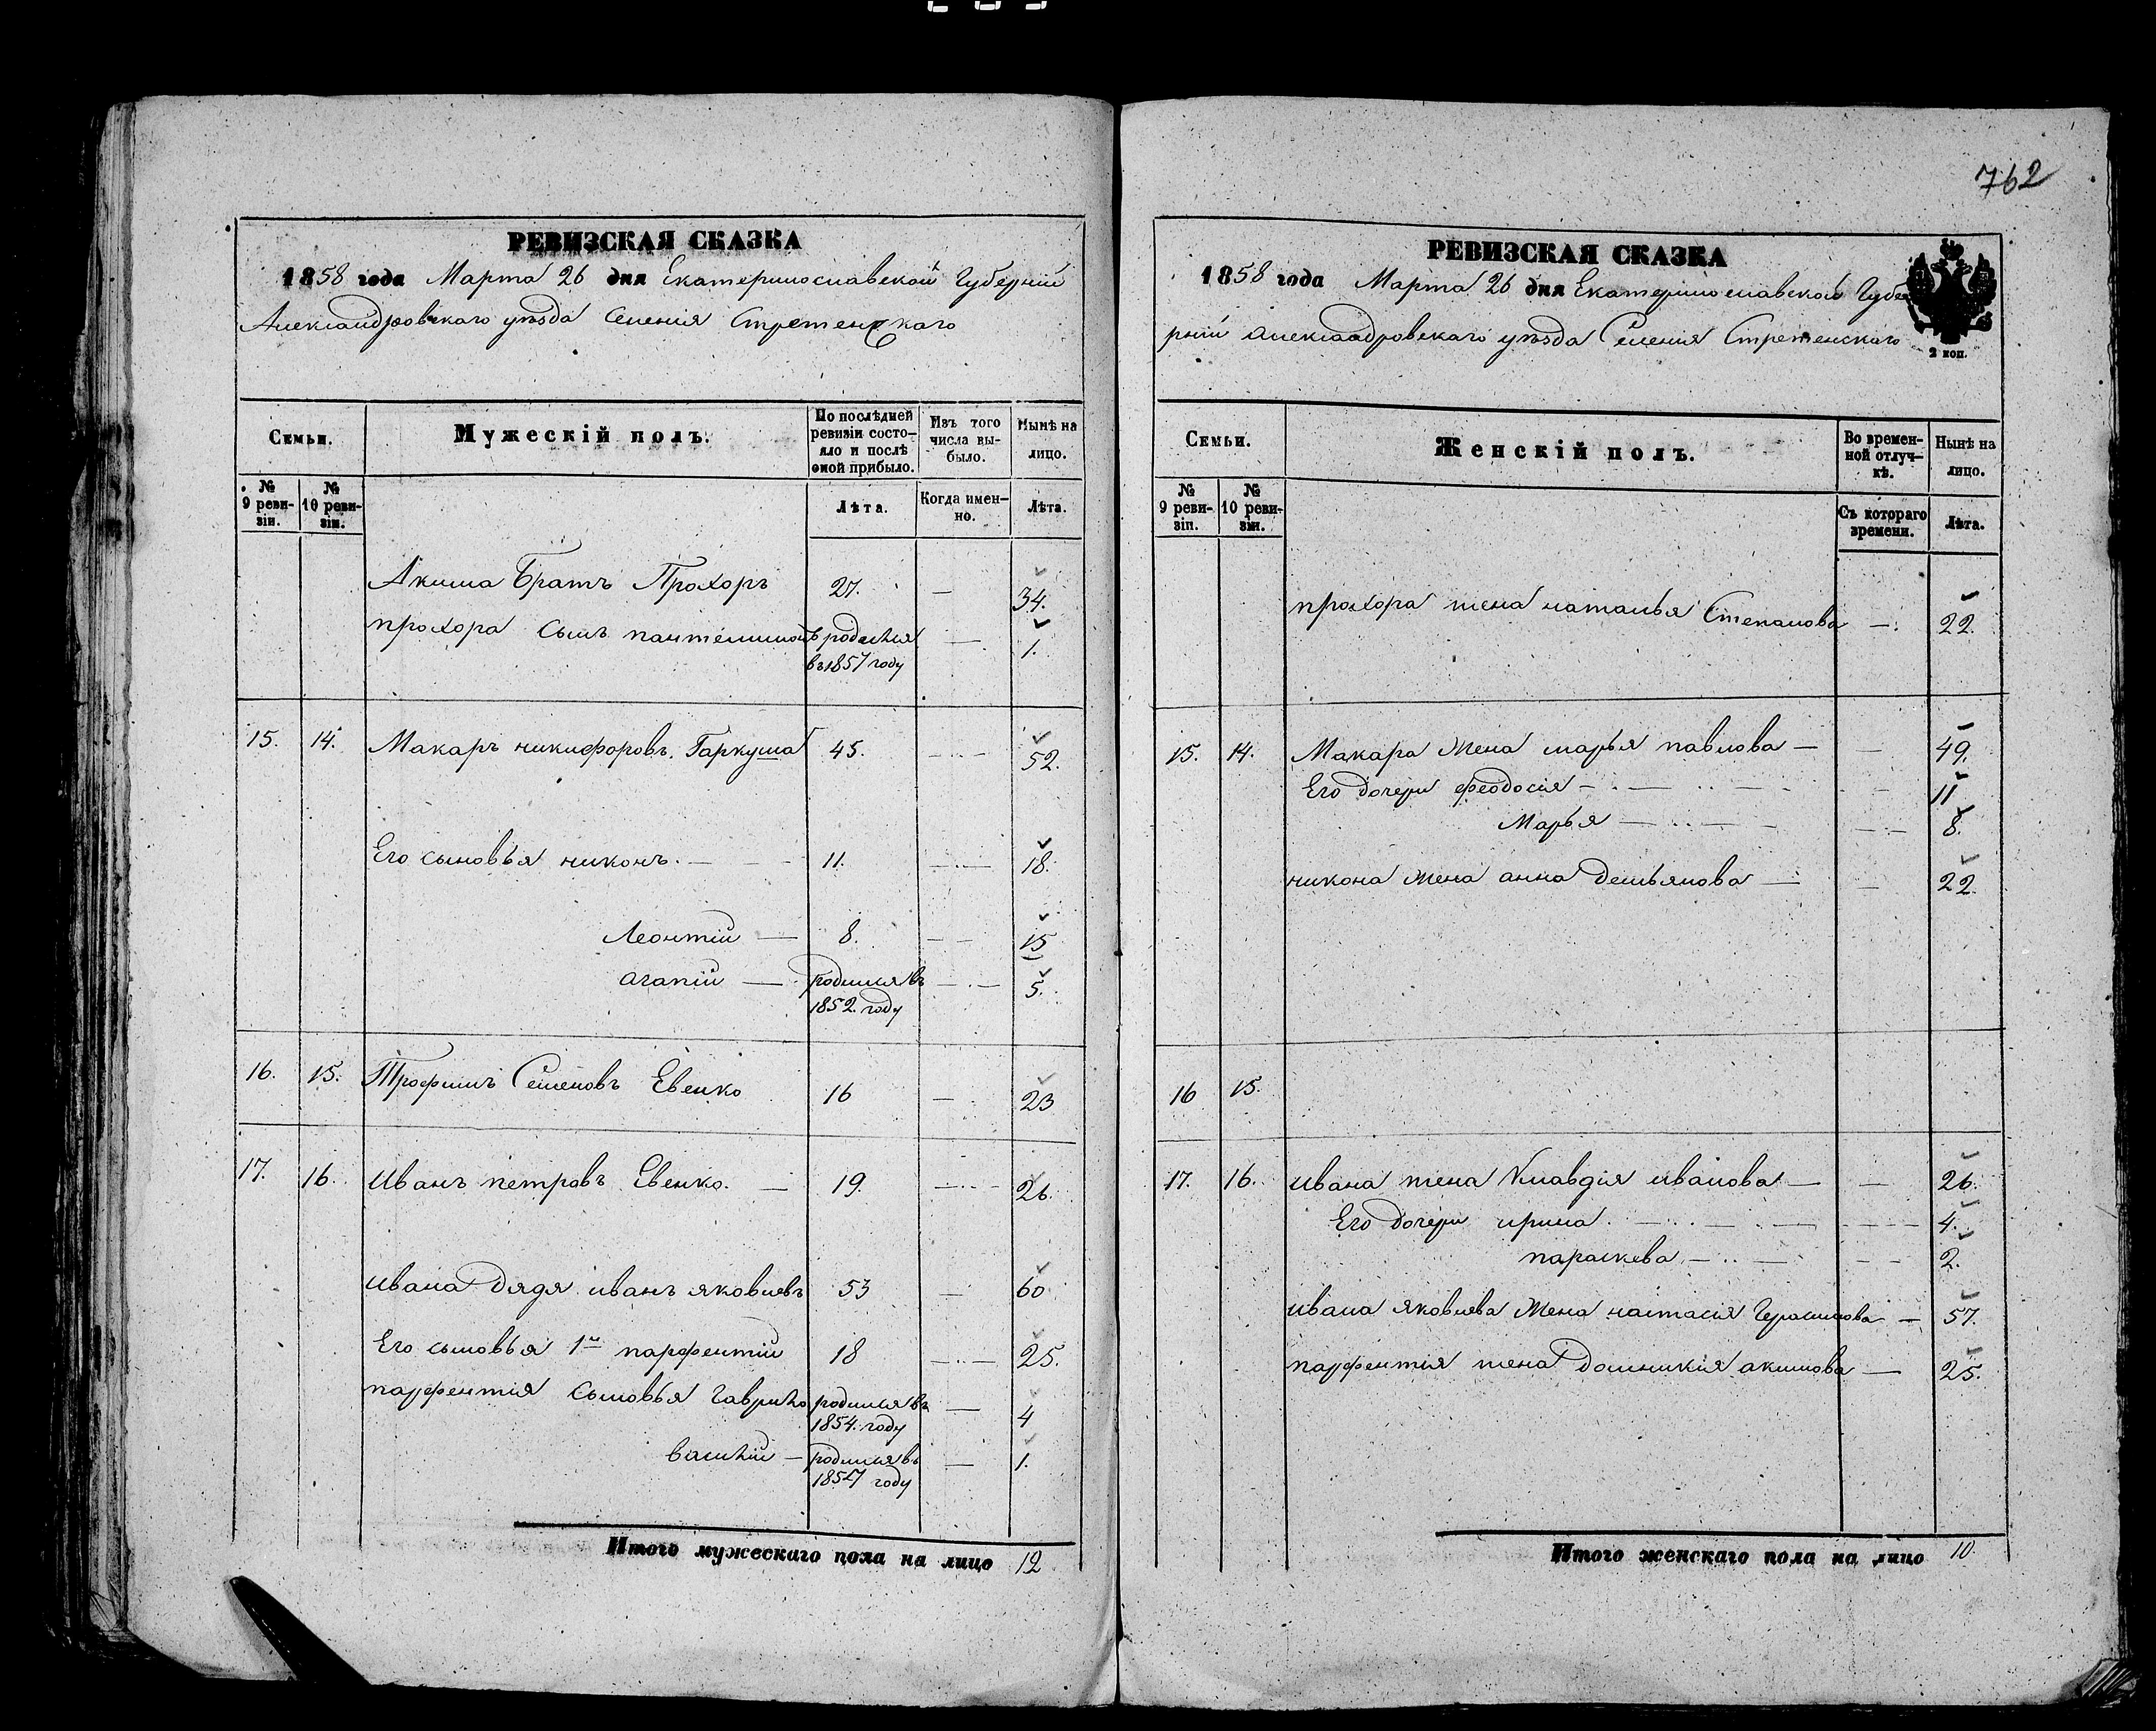 762
РЕВИЗСКАЯ СКАЗКА
1858 года Марта 26 дня Екатеринославской Губернии
Александровскаго уѣзда Селения Стретенскаго
Семьи.
Мужескій полъ.
По послѣдней ревизіи состояло и послѣ оной прибыло.
Изъ того числа выбыло.
Нынѣ на лицо.
№ 9 ревизіи.
№ 10 ревизіи.
Лѣта.
Когда именно.
Лѣта.
Акима Братъ Прохоръ 27. — 34.
прохора сынъ пантелимонъ родился въ 1857 году — 1.
15. 14. Макаръ никифоровъ Гаркуша 45. — 52.
Его сыновья никонъ. — 11. — 18.
Леонтій — 8. — 15
агапій — родился въ 1852. году — 5.
16. 15. Трофимъ Семеновъ Евенко 16 — 23
17. 16. Иванъ петровъ Евенко. — 19. — 26.
ивана дядя иванъ яковлевъ 53 — 60
Его сыновья 1й парфентій 18 — 25.
парфентія сыновья гаврило родился въ 1854. году — 4
василій — родился въ 1857 году — 1.
Итого мужескаго пола на лицо 12
РЕВИЗСКАЯ СКАЗКА
1858 года Марта 26 дня Екатеринославской Губе
рніи александровскаго уѣзда Селения Стретенскаго
2 коп.
Семьи.
Женскій полъ.
Во временной отлучкѣ.
Нынѣ на лицо.
№ 9 ревизіи.
№ 10 ревизіи.
Съ котораго времени.
Лѣта.
прохора жена наталья Степанова — 22.
15. 14. Макара жена марья павлова — — 49.
Его дочери феодосія — — 11
Марья — — 8.
никона жена анна демьянова — — 22
16 15.
17. 16. ивана жена Клавдія иванова — — 26.
Его дочери ирина. — — 4.
параскева — — 2.
ивана яковлева жена настасія Герасимова — 57.
парфентія жена домникія акимова — 25.
Итого женскаго пола на лицо 10.